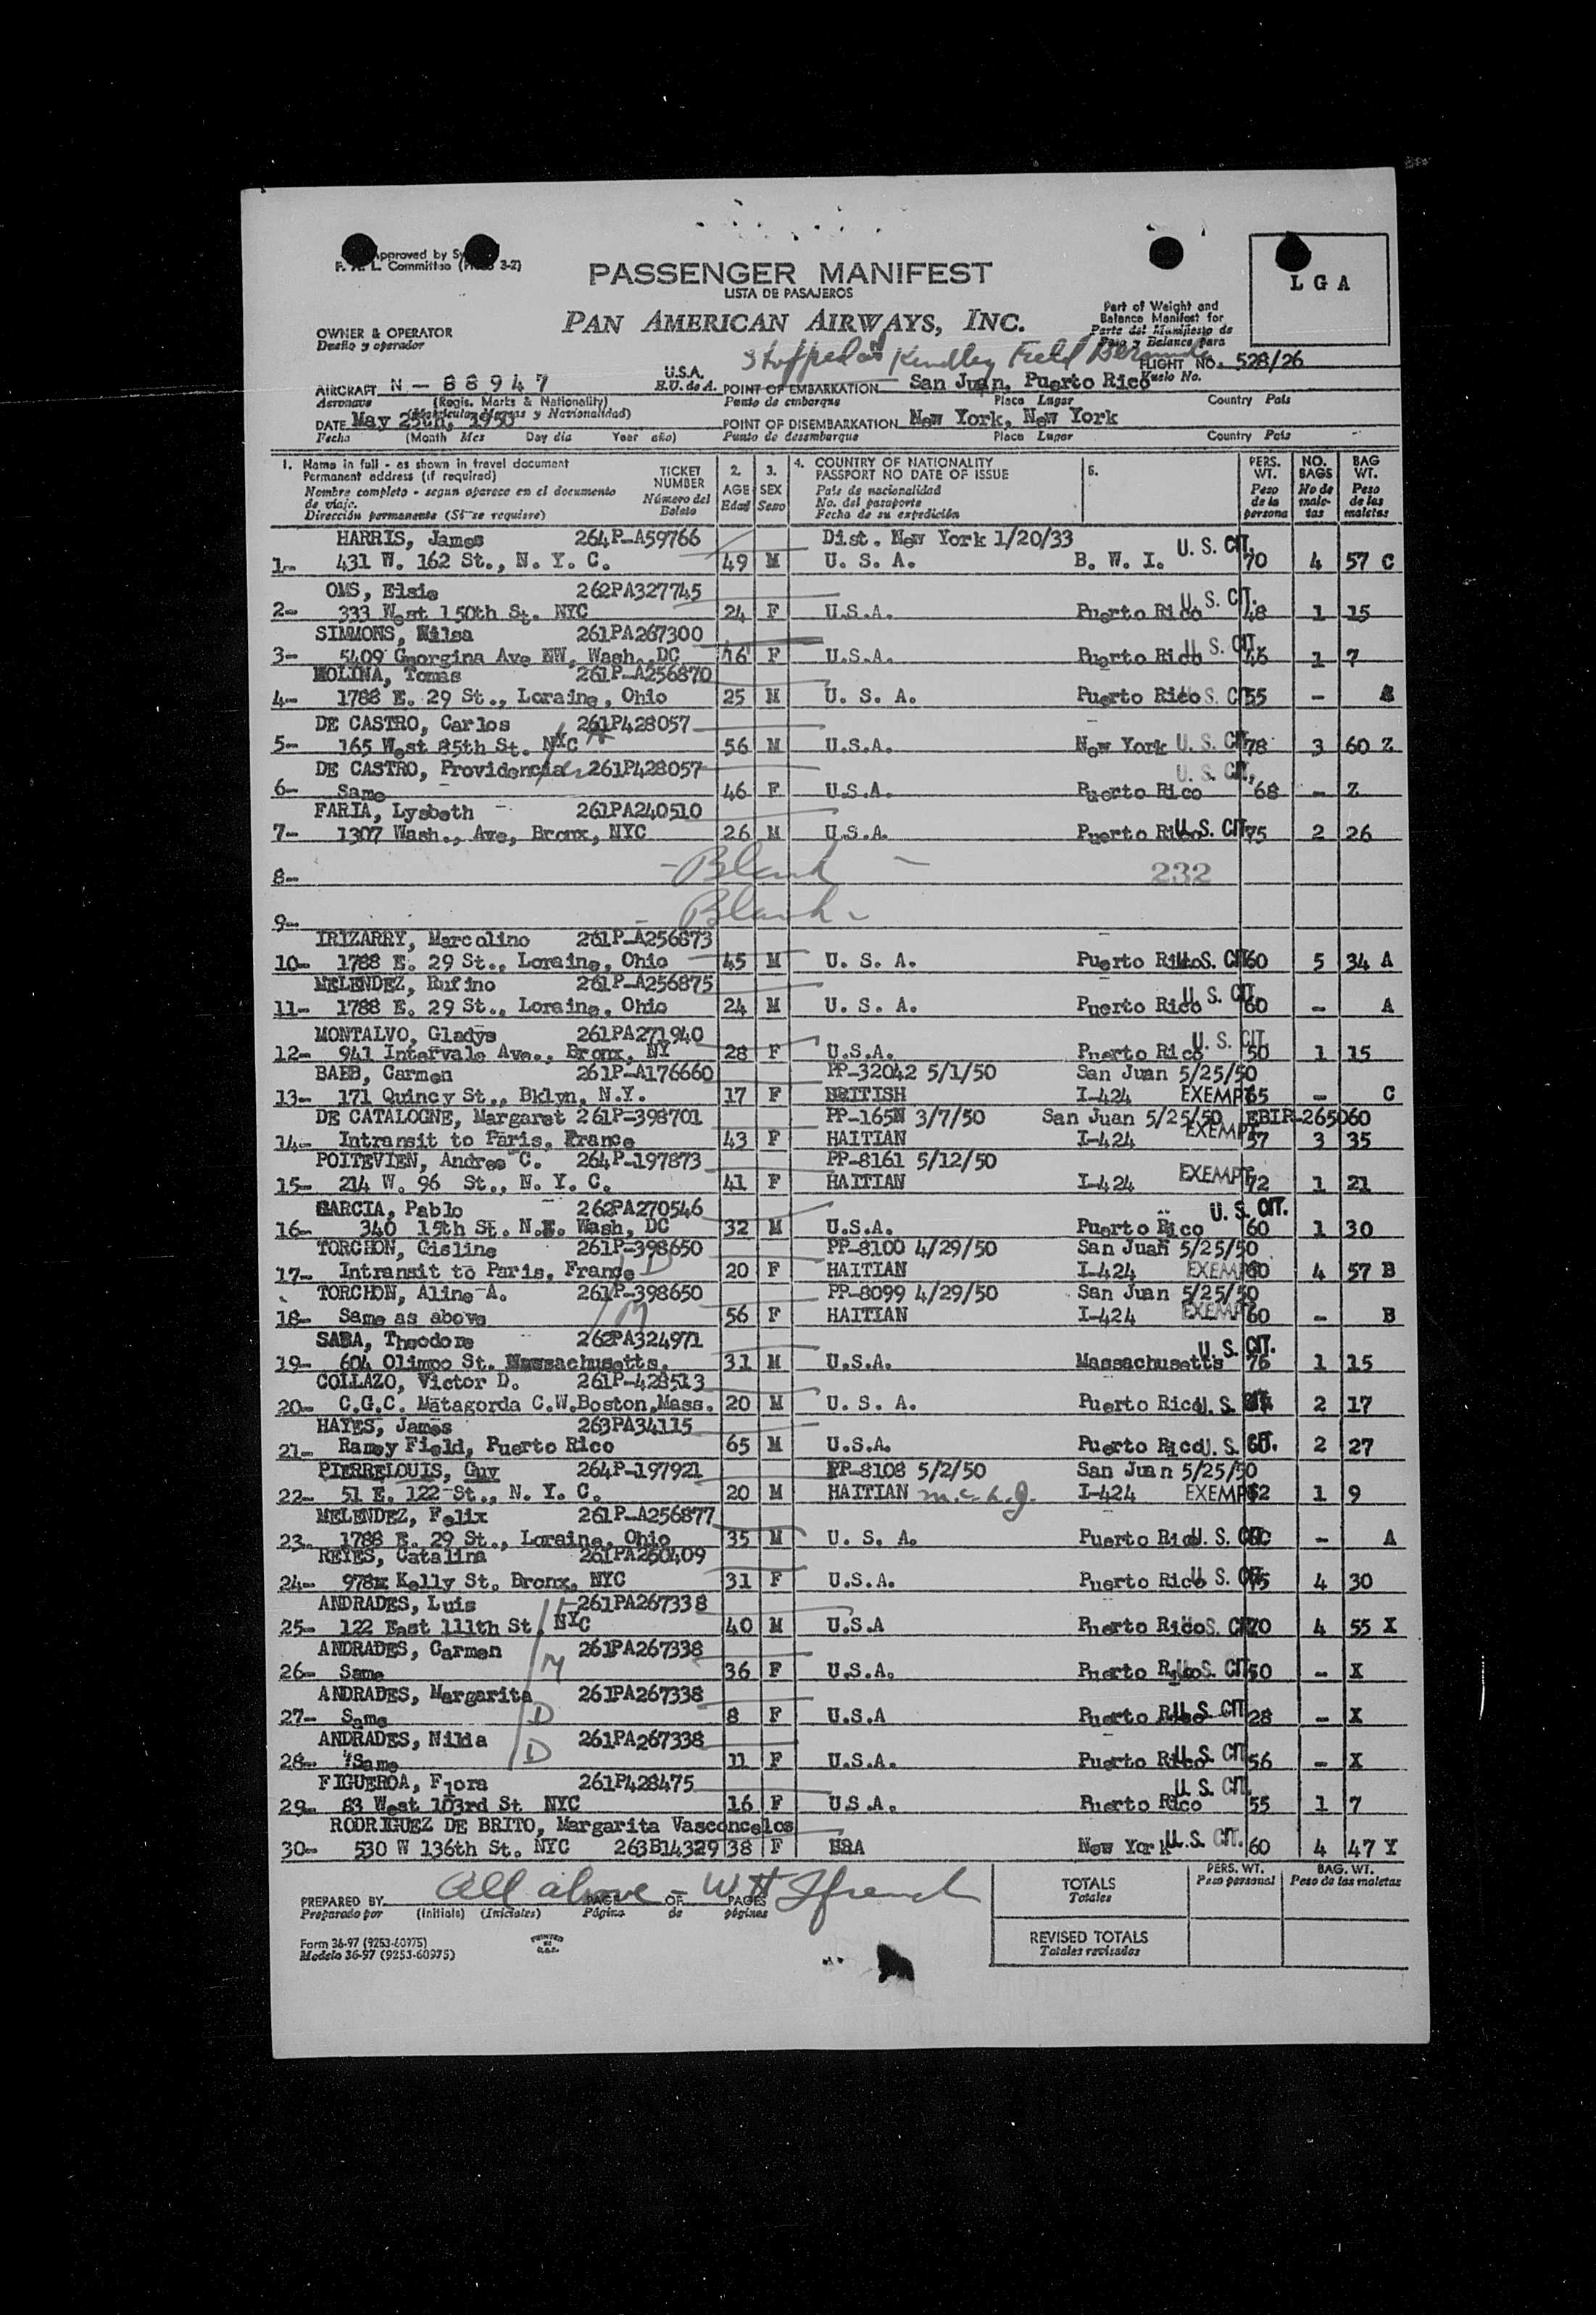 Approved by
F. A. L. Committee 3-2)
PASSENGER MANIFEST
LISTA DE PASAJEROS
PAN AMERICAN AIRWAYS, INC.
L G A
Part of Weight and
Balance Manifest for
Parte del Manifiesto de
Peso y Balance para
OWNER & OPERATOR
Dueño y operador
Stopped at Kindley Field Bermuda
FLIGHT NO. 528/26
Vuelo No.
AIRCRAFT N - 88947 U.S.A. E.U. de A. POINT OF EMBARKATION San Juan, Puerto Rico
Aeronave (Regis. Marks & Nationality) Punto de embarque Place Lugar Country País
(Matrículas Marcas y Nacionalidad)
DATE May 25th, 1950 POINT OF DISEMBARKATION New York, New York
Fecha (Month Mes Day día Year año) Punto de desembarque Place Lugar Country País
1. Name in full - as shown in travel document
Permanent address (if required)
Nombre completo - segun aparece en el documento
de viaje.
Dirección permanente (Si se requiere)
TICKET NUMBER Número del Boleto
2. AGE Edad
3. SEX Sexo
4. COUNTRY OF NATIONALITY
PASSPORT NO DATE OF ISSUE
País de nacionalidad
No. del pasaporte
Fecha de su expedición
5.
PERS. WT. Peso de la persona
NO. BAGS No de maletas
BAG WT. Peso de las maletas
HARRIS, James 264P-A59766 Dist. New York 1/20/33
1- 431 W. 162 St., N. Y. C. 49 M U. S. A. B. W. I. U. S. CIT. 70 4 57 C
OMS, Elsie 262PA327745
2- 333 West 150th St. NYC 24 F U.S.A. Puerto Rico U. S. CIT. 48 1 15
SIMMONS, Nilsa 261PA267300
3- 5409 Georgina Ave NW, Wash., DC 16 F U.S.A. Puerto Rico U. S. CIT. 46 1 7
MOLINA, Tomas 261P-A256870
4- 1788 E. 29 St., Loraine, Ohio 25 M U. S. A. Puerto Rico U. S. CIT. 55 - A
DE CASTRO, Carlos 261P428057
5- 165 West 85th St. NYC 56 M U.S.A. New York U. S. CIT. 78 3 60 Z
DE CASTRO, Providencia 261P428057
6- Same 46 F U.S.A. Puerto Rico U. S. CIT. 68 - Z
FARIA, Lysbeth 261PA240510
7- 1307 Wash., Ave, Bronx, NYC 26 M U.S.A. Puerto Rico U. S. CIT. 75 2 26
8- - Blank - 232
9- - Blank -
IRIZARRY, Marcolino 261P-A256873
10- 1788 E. 29 St., Loraine, Ohio 45 M U. S. A. Puerto Rico U. S. CIT. 60 5 34 A
MELENDEZ, Rufino 261P-A256875
11- 1788 E. 29 St., Loraine, Ohio 24 M U. S. A. Puerto Rico U. S. CIT. 60 - A
MONTALVO, Gladys 261PA271940
12- 941 Intervale Ave., Bronx, NY 28 F U.S.A. Puerto Rico U. S. CIT. 50 1 15
BABB, Carmen 261P-A176660 PP-32042 5/1/50 San Juan 5/25/50
13- 171 Quincy St., Bklyn, N.Y. 17 F BRITISH I-424 EXEMPT 65 - C
DE CATALOGNE, Margaret 261P-398701 PP-165N 3/7/50 San Juan 5/25/50 EBIP-265060
14- Intransit to Paris, France 43 F HAITIAN I-424 EXEMPT 57 3 35
POITEVIEN, Andree C. 264P-197873 PP-8161 5/12/50
15- 214 W. 96 St., N. Y. C. 41 F HAITIAN I-424 EXEMPT 72 1 21
GARCIA, Pablo 262PA270546
16- 340 15th St. N.E. Wash, DC 32 M U.S.A. Puerto Rico U. S. CIT. 60 1 30
TORCHON, Gisline 261P-398650 PP-8100 4/29/50 San Juan 5/25/50
17- Intransit to Paris, France D 20 F HAITIAN I-424 EXEMPT 60 4 57 B
TORCHON, Aline A. 261P-398650 PP-8099 4/29/50 San Juan 5/25/50
18- Same as above M 56 F HAITIAN I-424 EXEMPT 60 - B
SABA, Theodore 262PA324971
19- 604 Olimpo St. Massachusetts. 31 M U.S.A. Massachusetts U. S. CIT. 76 1 15
COLLAZO, Victor D. 261P-428513
20- C.G.C. Matagorda C.W.Boston,Mass. 20 M U. S. A. Puerto Rico U. S. 2 17
HAYES, James 263PA34115
21- Ramey Field, Puerto Rico 65 M U.S.A. Puerto Rico U. S. CIT. 2 27
PIERRELOUIS, Guy 264P-197921 PP-8108 5/2/50 San Juan 5/25/50
22- 51 E. 122 St., N. Y. C. 20 M HAITIAN I-424 EXEMPT 62 1 9
MELENDEZ, Felix 261P-A256877
23. 1788 E. 29 St., Loraine, Ohio 35 M U. S. A. Puerto Rico U. S. - A
REYES, Catalina 261PA260409
24- 978 Kelly St. Bronx, NYC 31 F U.S.A. Puerto Rico U. S. CIT. 4 30
ANDRADES, Luis 261PA267338
25- 122 East 111th St. NYC 40 M U.S.A Puerto Rico U. S. CIT. 70 4 55 X
ANDRADES, Carmen 261PA267338
26- Same M 36 F U.S.A. Puerto Rico U. S. CIT. 50 - X
ANDRADES, Margarita 261PA267338
27- Same D 8 F U.S.A Puerto Rico U. S. CIT. 28 - X
ANDRADES, Nilda 261PA267338
28- Same D 11 F U.S.A. Puerto Rico U. S. CIT. 56 - X
FIGUEROA, Flora 261P428475
29- 83 West 103rd St NYC 16 F U.S.A. Puerto Rico U. S. CIT. 55 1 7
RODRIGUEZ DE BRITO, Margarita Vasconcelos
30- 530 W 136th St. NYC 263B14329 38 F USA New York U. S. CIT. 60 4 47 Y
All above - W H Ffrench
PREPARED BY PAGE OF PAGES
Preparado por (Initials) (Iniciales) Página de páginas
PERS. WT. Peso personal BAG. WT. Peso de las maletas
TOTALS
Totales
REVISED TOTALS
Totales revisados
Form 36-97 (9253-60975)
Modelo 36-97 (9253-60975)
PRINTED IN U.S.A.